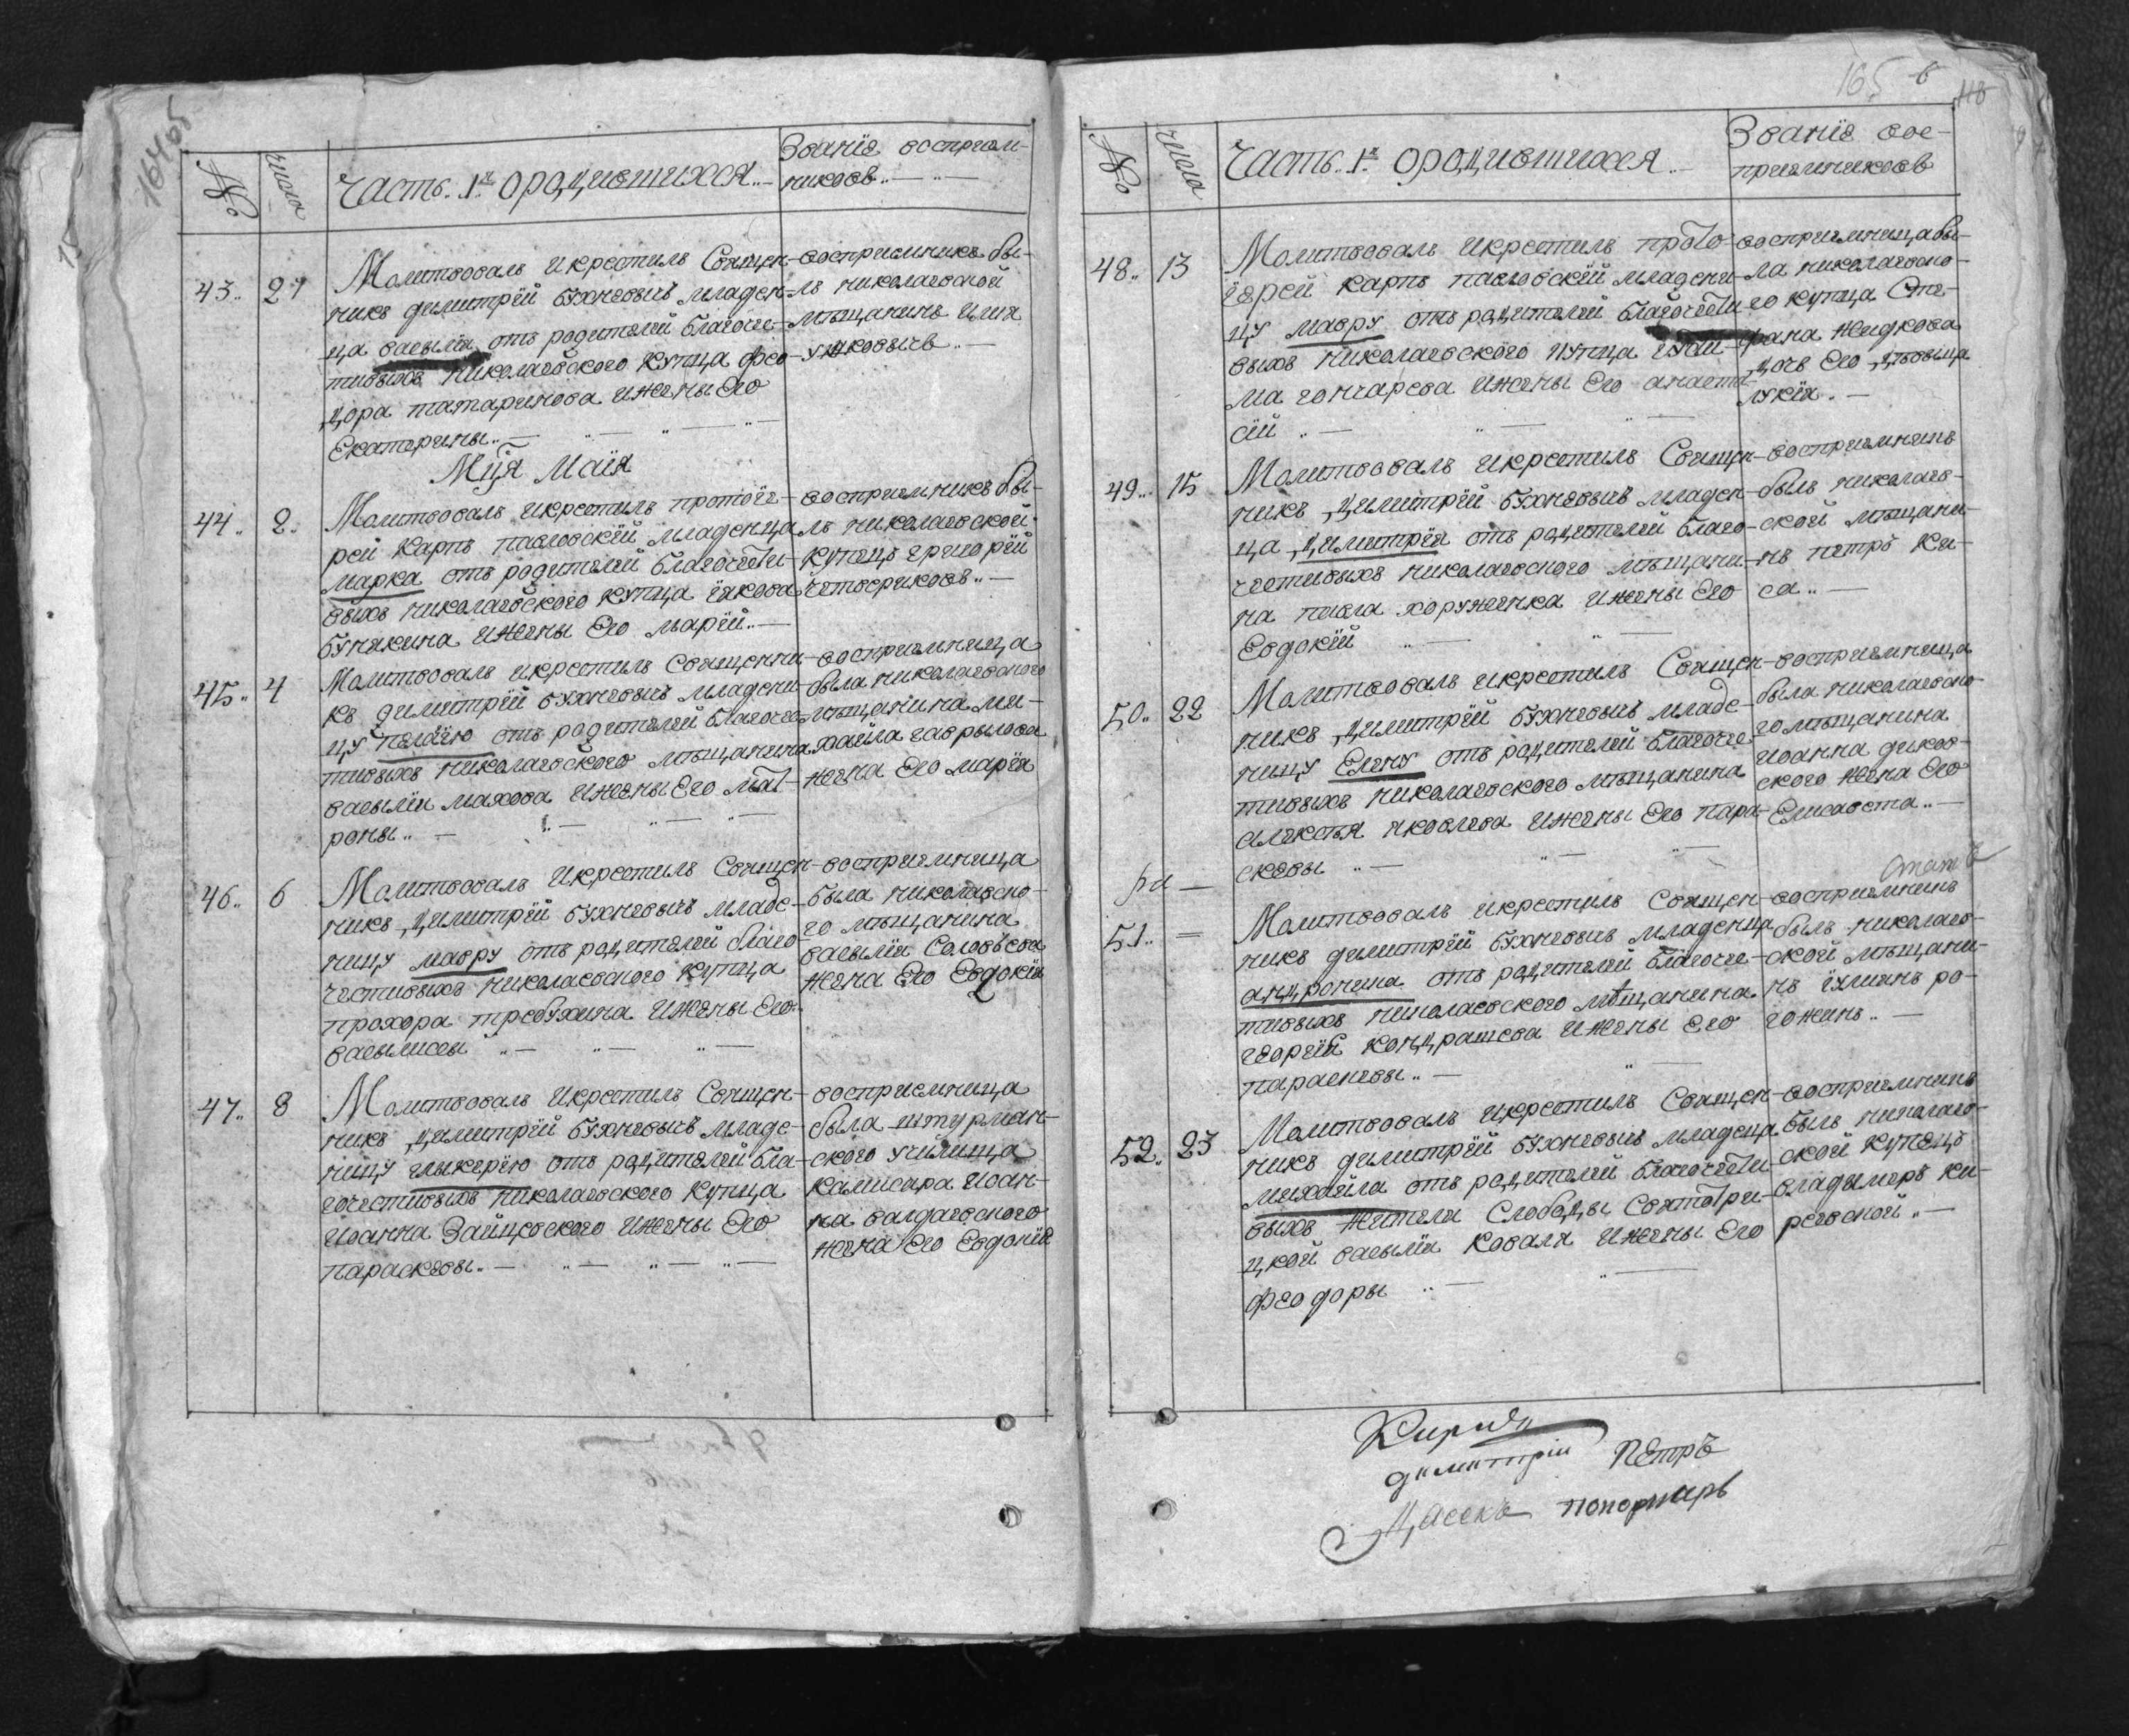 164 об
№
числа
Часть. 1я. о родившихся..
Званїе восприем-
никовъ..
43..
27
Молитвовалъ и крестилъ Священ-
никъ димитрїй бухневичъ младен-
ца василїя отъ родителей благоче-
тивыхъ николаевского купца фео-
дора татаринова и жены Его
Екатерины..
восприемникъ бы-
лъ николаевской
мѣщанинъ илия
Мца Маїя
44..
2.
Молитвовалъ и крестилъ протоїе-
рей карпъ павловскїй младенца
марка отъ родителей благочести-
выхъ николаевского купца їякова
бунякина и жены Его марїй..
восприемникъ бы-
лъ николаевской
купецъ григорїй
четвериковъ..
45..
4
Молитвовалъ и крестилъ Священни-
къ димитрїй бухневичъ младени-
цу пелагїю отъ родителей благоче-
тивыхъ николаевского мѣщанина
василїя махова и жены Его мат-
роны..
восприемница
была николаевского
мѣщанина ми-
хайла гаврылова
жена Его марїя
46..
6
Молитвовалъ и крестилъ Священ-
никъ димитрїй бухневичъ младе-
ницу мавру отъ родителей благо-
честивыхъ николаевского купца
прохора требухина и жены Его
василисы
восприемница
была николаевско-
го мѣщанина
василїя Соловьева
жена Его Евдокїя
47..
8
Молитвовалъ и крестилъ Священ-
никъ димитрїй бухневичъ младе-
ницу глыкерїю отъ родителей бла-
гочестивыхъ николаевского купца
иоанна Зайцевского и жены Его
параскевы..
восприемница
была штурман-
ского училища
камисара иоан-
на валдаевского
жена Его Евдокїя
165
№
числа
Часть. 1я. о родившихся..
Званїе вос-
приемниковъ
48..
13
Молитвовалъ и крестилъ прото-
їерей карпъ павловскїй младени-
цу мавру отъ родителей благочести-
выхъ николаевского купца
ма гончарева и жены Его анаста-
сїй..
восприемница бы-
ла николаевско-
го купца Сте-
фана жидкова
дочь Его девица
лукїя..
49..
15
Молитвовалъ и крестилъ Священ-
никъ димитрїй бухневичъ младен-
ца димитрїя отъ родителей благо-
честивыхъ николаевского мѣщани-
на павла хоруженка и жены Его
Евдокїй
восприемникъ
былъ николаев-
ской мѣщани-
нъ петръ ки-
са..
50..
22
Молитвовалъ и крестилъ Священ-
никъ димитрїй бухневичъ младе-
ницу Елену отъ родителей благоче-
тивыхъ николаевского мѣщанина
алексѣя яковлева и жены Его пара-
скевы..
восприемница
была николаевско-
го мѣщанина
иоанна диков-
ского жена Его
Елисавета..
51..
=
Молитвовалъ и крестилъ Священ-
никъ димитрїй бухневичъ младенца
андроника отъ родителей благоче-
тивыхъ николаевского мѣщанина
георгїя кондрашева и жены его
параскевы..
восприемникъ
былъ николаев-
ской мѣщани-
нъ їулианъ ро-
гожинъ..
52..
23
Молитвовалъ и крестилъ Священ-
никъ димитрїй бухневичъ младенца
михайла отъ родителей благочести-
выхъ жителя слободы Святотрои-
цкой василїя коваля и жены Его
феодоры
восприемникъ
былъ николаев-
ской купецъ
владимеръ ки-
реевской..
димитрїи
Петръ
пономаръ